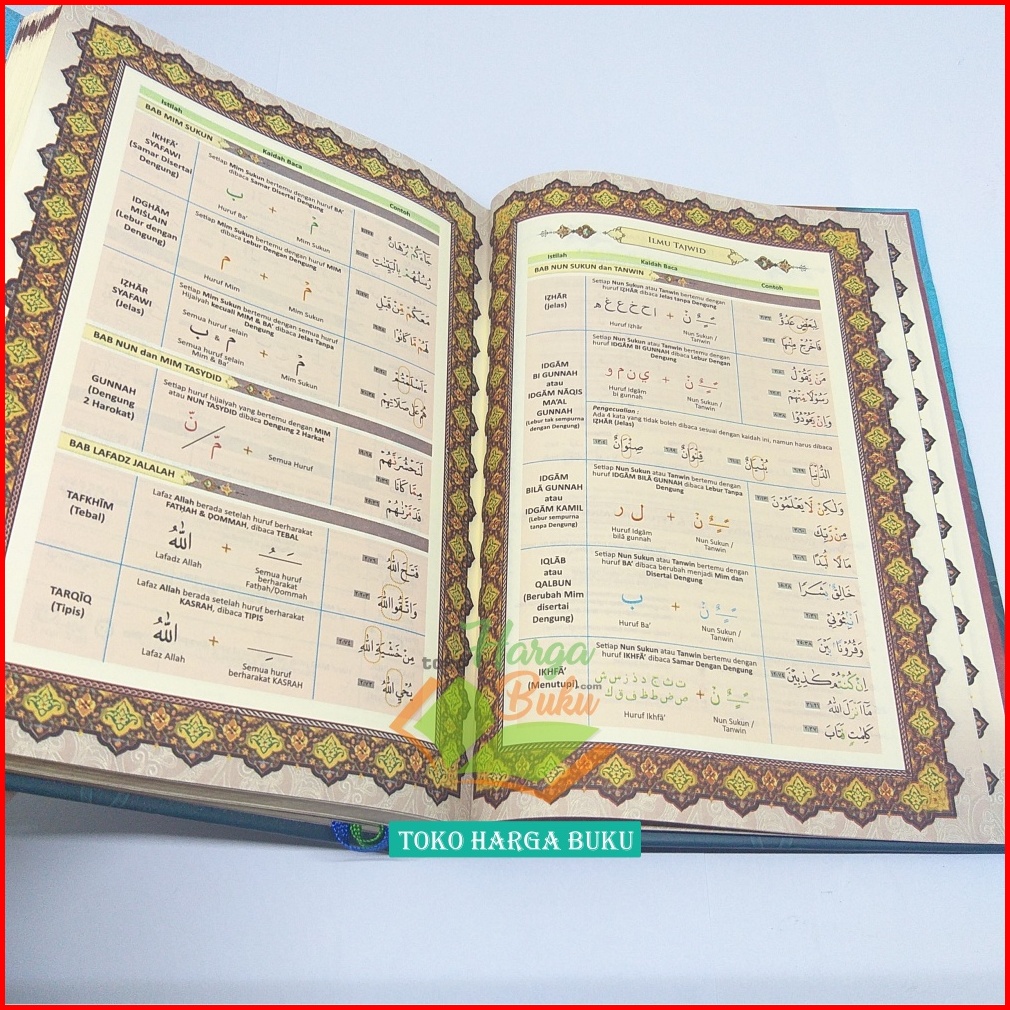 ILMU TAJWID
Istilah
Kaidah Baca
Contoh
BAB NUN SUKUN dan TANWIN
IZHĀR
(Jelas)
Setiap Nun Sukun atau Tanwin bertemu dengan
huruf IZHĀR dibaca Jelas tanpa Dengung
+
Huruf Izhār
Nun Sukun /
Tanwin
IDGĀM
BI GUNNAH
atau
IDGĀM NĀQIS
MA'AL
GUNNAH
(Lebur tak sempurna
dengan Dengung)
Setiap Nun Sukun atau Tanwin bertemu dengan
huruf IDGĀM BI GUNNAH dibaca Lebur Dengan
Dengung
ي ن م و
+
Huruf Idgām
bi gunnah
Nun Sukun /
Tanwin
مَنْ يَقُوْلُ
Pengecualian :
Ada 4 kata yang tidak boleh dibaca sesuai dengan kaidah ini, namun harus dibaca
IZHĀR (Jelas)
صِنْوَانٌ
قِنْوَانٌ
بُنْيَانٌ
الدُّنْيَا
IDGĀM
BILĀ GUNNAH
atau
IDGĀM KAMIL
(Lebur sempurna
tanpa Dengung)
Setiap Nun Sukun atau Tanwin bertemu dengan
huruf IDGĀM BILĀ GUNNAH dibaca Lebur Tanpa
Dengung
ل ر
+
Huruf Idgām
bilā gunnah
Nun Sukun /
Tanwin
وَلٰكِنْ لَا يَعْلَمُوْنَ
مِنْ رَبِّكَ
مَالًا لُبَدًا
IQLĀB
atau
QALBUN
(Berubah Mim
disertai
Dengung)
Setiap Nun Sukun atau Tanwin bertemu dengan
huruf BA' dibaca berubah menjadi Mim dan
Disertai Dengung
ب
+
Huruf Ba'
Nun Sukun /
Tanwin
IKHFĀ'
(Menutupi)
Setiap Nun Sukun atau Tanwin bertemu dengan
huruf IKHFĀ' dibaca Samar Dengan Dengung
ت ث ج د ذ ز س ش
ص ض ط ظ ف ق ك
+
Huruf Ikhfā'
Nun Sukun /
Tanwin
Istilah
Kaidah Baca
Contoh
BAB MIM SUKUN
IKHFĀ'
SYAFAWI
(Samar Disertai
Dengung)
Setiap Mim Sukun bertemu dengan huruf BA'
dibaca Samar Disertai Dengung
ب + مْ
Huruf Ba'
Mim Sukun
IDGHĀM
MIŚLAIN
(Lebur dengan
Dengung)
Setiap Mim Sukun bertemu dengan huruf MIM
dibaca Lebur Dengan Dengung
م + مْ
Huruf Mim
Mim Sukun
IZHĀR
SYAFAWI
(Jelas)
Setiap Mim Sukun bertemu dengan semua huruf
Hijaiyah kecuali MIM & BA' dibaca Jelas Tanpa
Dengung
Semua huruf selain
م & ب
+ مْ
Semua huruf selain
Mim & Ba'
Mim Sukun
BAB NUN dan MIM TASYDID
GUNNAH
(Dengung
2 Harokat)
Setiap huruf hijaiyah yang bertemu dengan MIM
atau NUN TASYDID dibaca Dengung 2 Harkat
نّ / مّ
+ Semua Huruf
BAB LAFADZ JALALAH
TAFKHĪM
(Tebal)
Lafaz Allah berada setelah huruf berharakat
FATHAH & DOMMAH, dibaca TEBAL
اللّٰهُ +
Lafadz Allah
Semua huruf
berharakat
Fathah/Dommah
فَتَحَ اللّٰهُ
وَاتَّقُوا اللّٰهَ
TARQĪQ
(Tipis)
Lafaz Allah berada setelah huruf berharakat
KASRAH, dibaca TIPIS
اللّٰهُ +
Lafaz Allah
Semua huruf
berharakat KASRAH
مِنْ خَشْيَةِ اللّٰهِ
toko
Harga
Buku
.com
TOKO HARGA BUKU